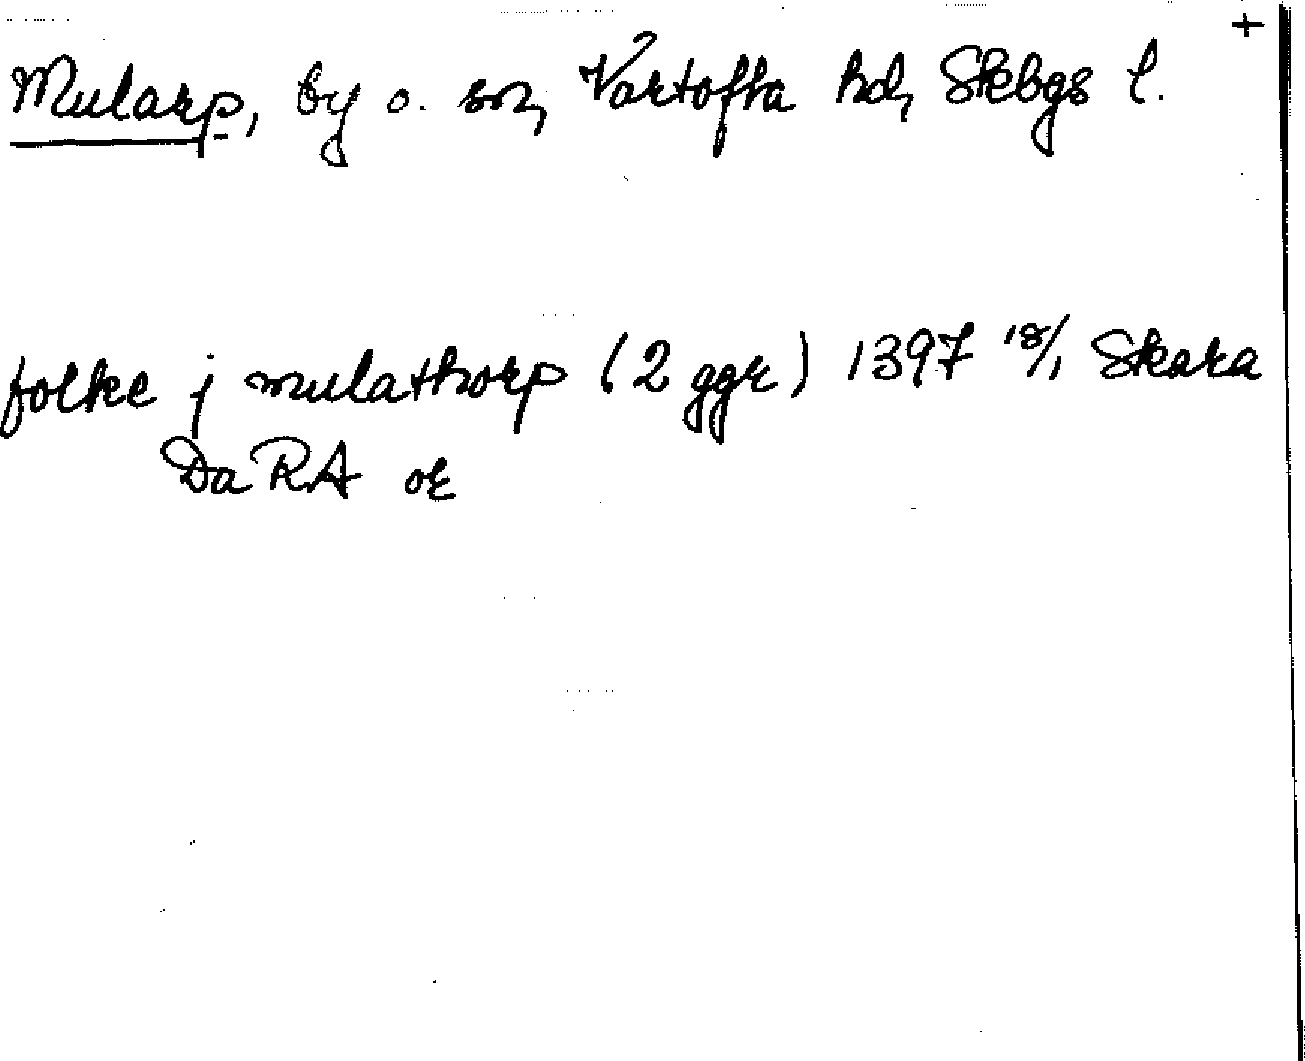 +
Mularp, by o. sn, Vartofta hd, Skbgs l.
folke j mulathorp (2 ggr) 1397 18/1 Skara
DaRA or